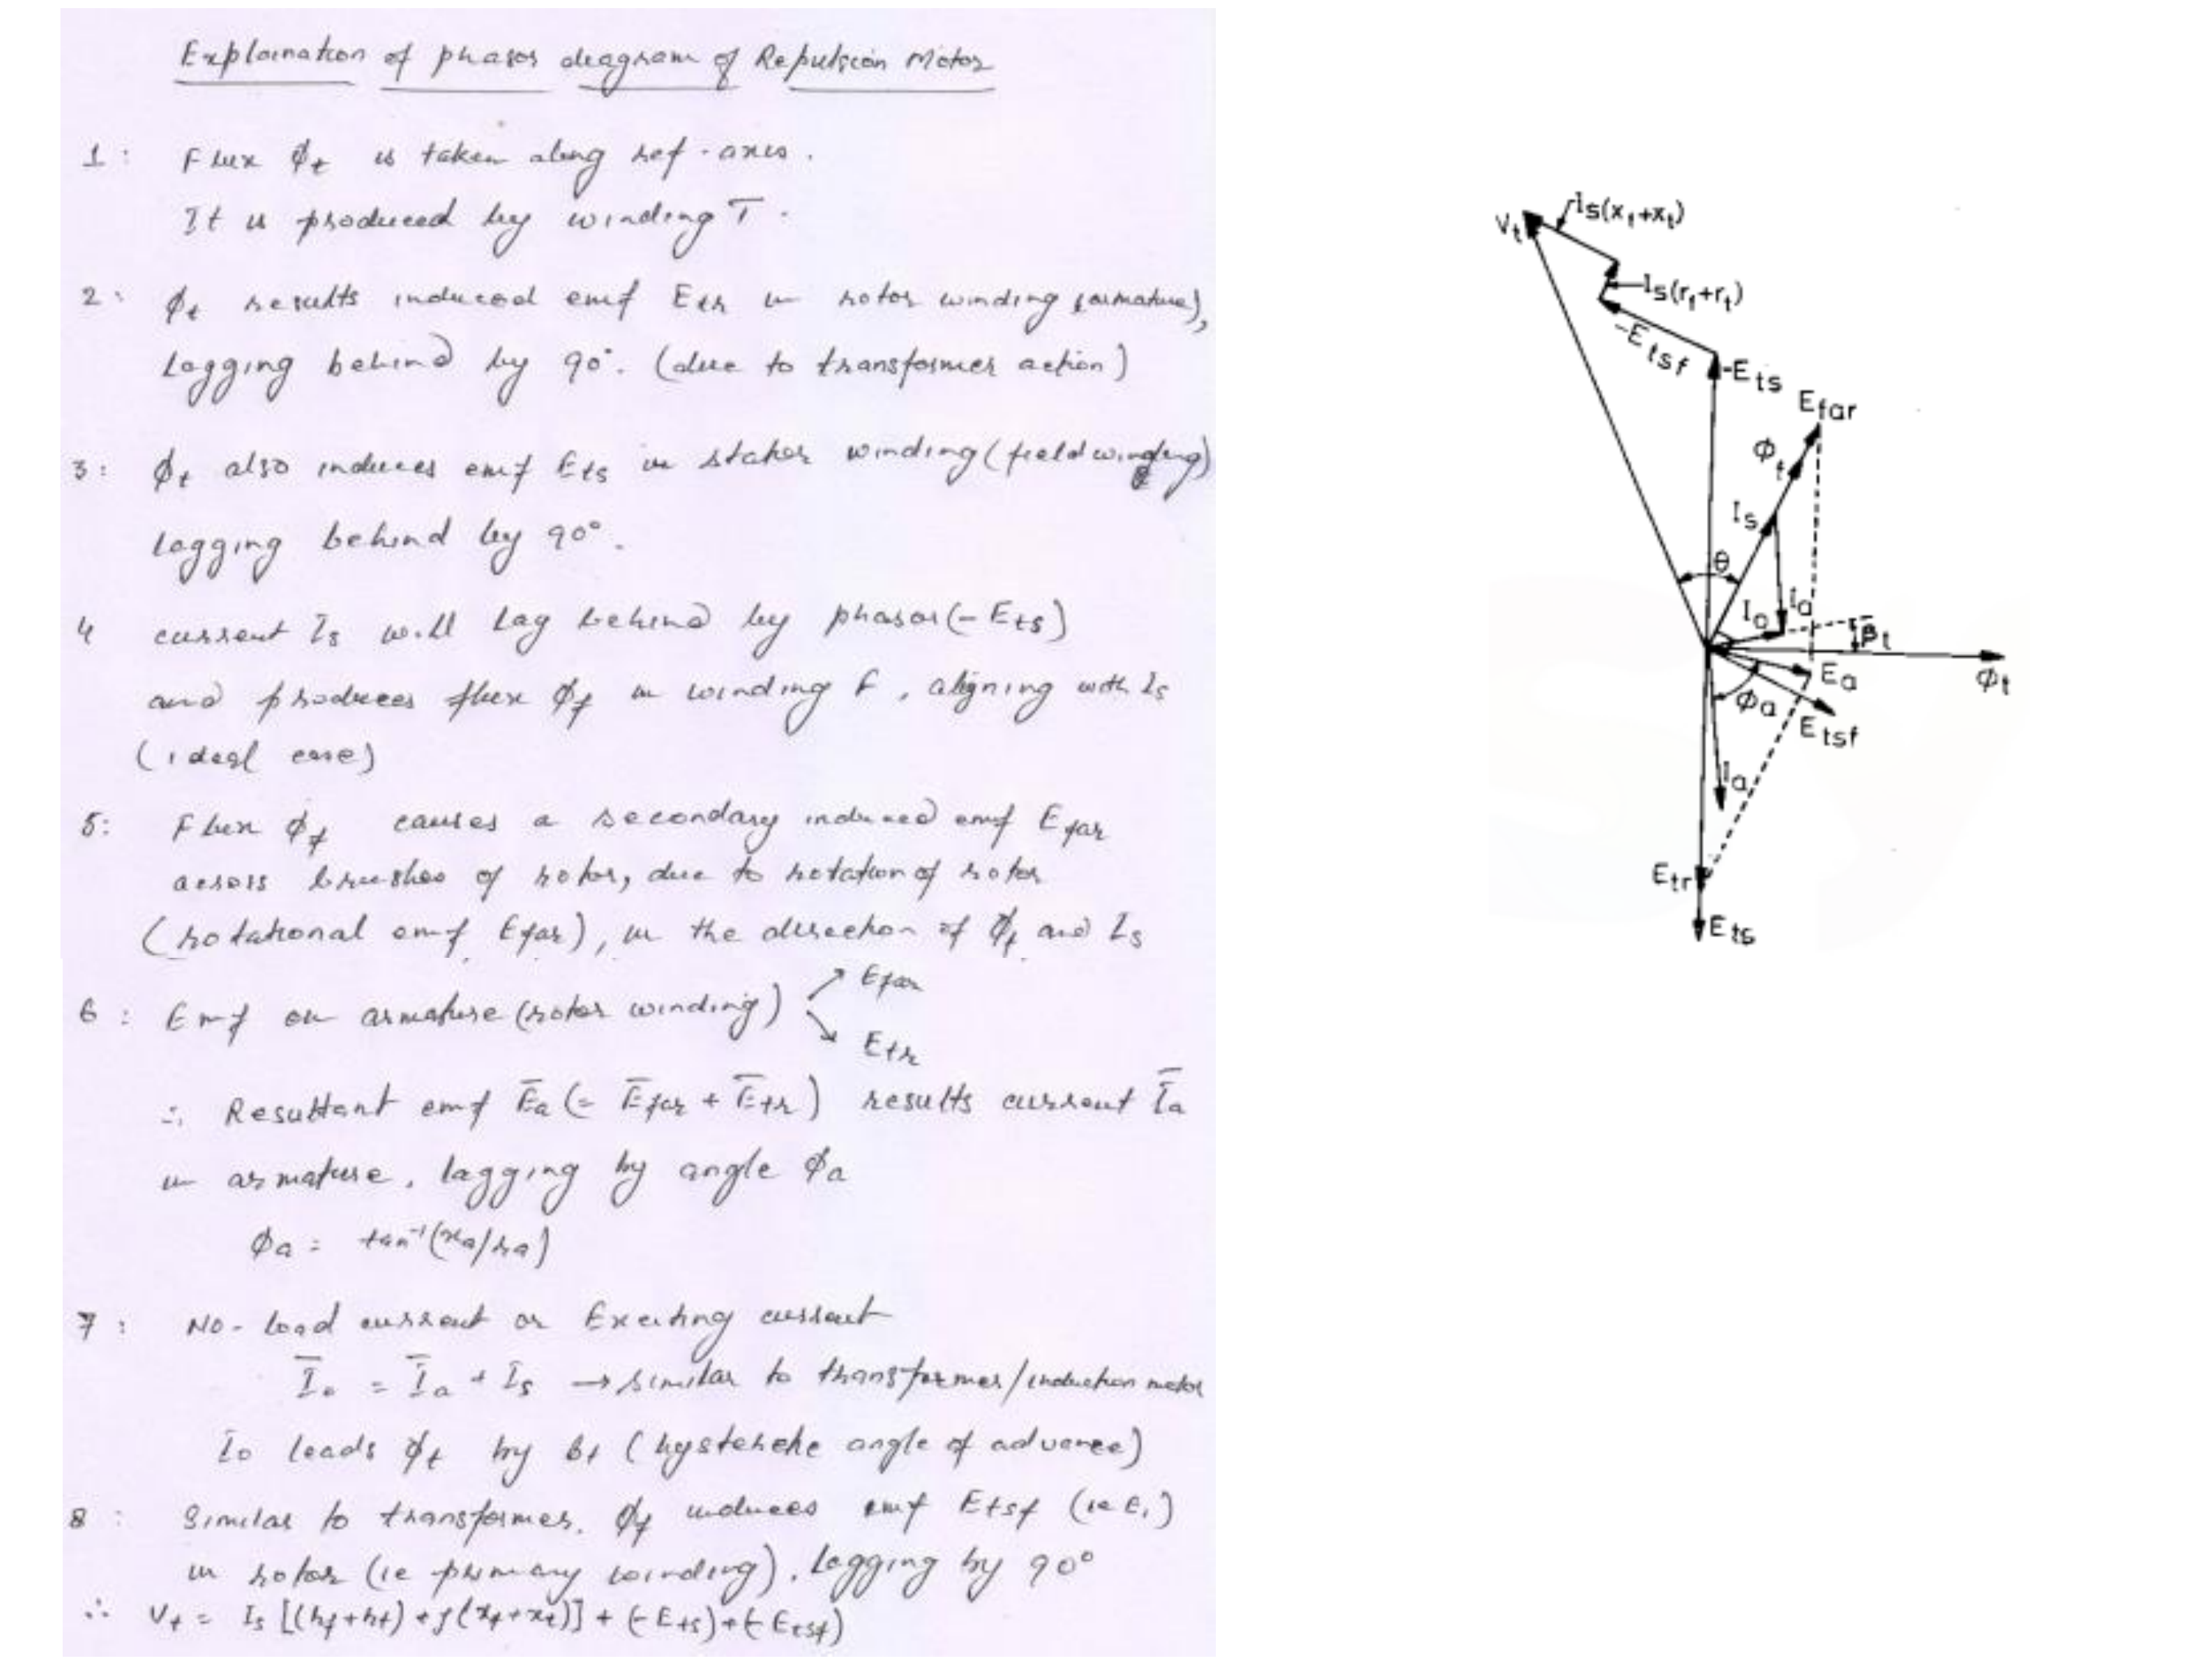 Explaination of phasor diagram of Repulsion Motor
1: Flux ϕt is taken along ref-axis.
It is produced by winding T.
2: ϕt results induced emf Etr in rotor winding (armature),
Lagging behind by 90°. (due to transformer action)
3: ϕt also induces emf Ets in stator winding (field winding)
Lagging behind by 90°.
4 current Is will lag behind by phasor (-Ets)
and produces flux ϕf in winding F, aligning with Is
(ideal case)
5: Flux ϕf causes a secondary induced emf Efar
across brushes of rotor, due to rotation of rotor
(rotational emf Efar), in the direction of ϕf and Is
6: Emf on armature (rotor winding) ↗ Efar
↘ Etr
∴ Resultant emf Ēa (= Ēfar + Ētr) results current Īa
in armature, lagging by angle ϕa
ϕa = tan⁻¹(xa/ra)
7: No-load current or Exciting current
Īo = Īa + Īs → similar to transformer/induction motor
Īo leads ϕt by βt (hysteretic angle of advance)
8: Similar to transformer, ϕf induces emf Etsf (ie E1)
in rotor (ie primary winding), Lagging by 90°
∴ Vt = Is [(rf+rt) + j(xf+xt)] + (-Ets) + (-Etsf)
Vt
Is(xf+xt)
Is(rf+rt)
-Etsf
-Ets
Efar
ϕf
Is
θ
Io
Ia
βt
ϕt
Ea
ϕa
Etsf
Ia
Etr
Ets